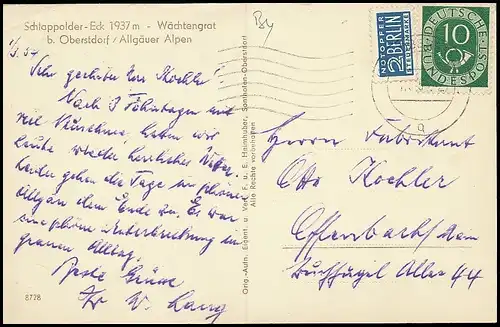 Schlappolder-Eck 1937 m - Wächtengrat
b. Oberstdorf / Allgäuer Alpen
Sehr geehrter Herr Koehler!
Nach 3 Föhntagen mit
viel Neuschnee, haben wir
heute wieder herrliches Wetter.
Leider gehen die Tage im schönen
Allgäu dem Ende zu. Es war
eine schöne Unterbrechung im
grauen Alltag.
Beste Grüsse
W. Lang
8778
Orig.-Aufn. Eigent. u. Verl. F. u. E. Heimhuber, Sonthofen-Oberstdorf
Alle Rechte vorbehalten
By
NOTOPFER
2 BERLIN
STEUERMARKE
DEUTSCHE BUNDESPOST
10
a
Herrn Fabrikant
Otto Koehler
Offenbach / Main
Buchhügel Allee 44